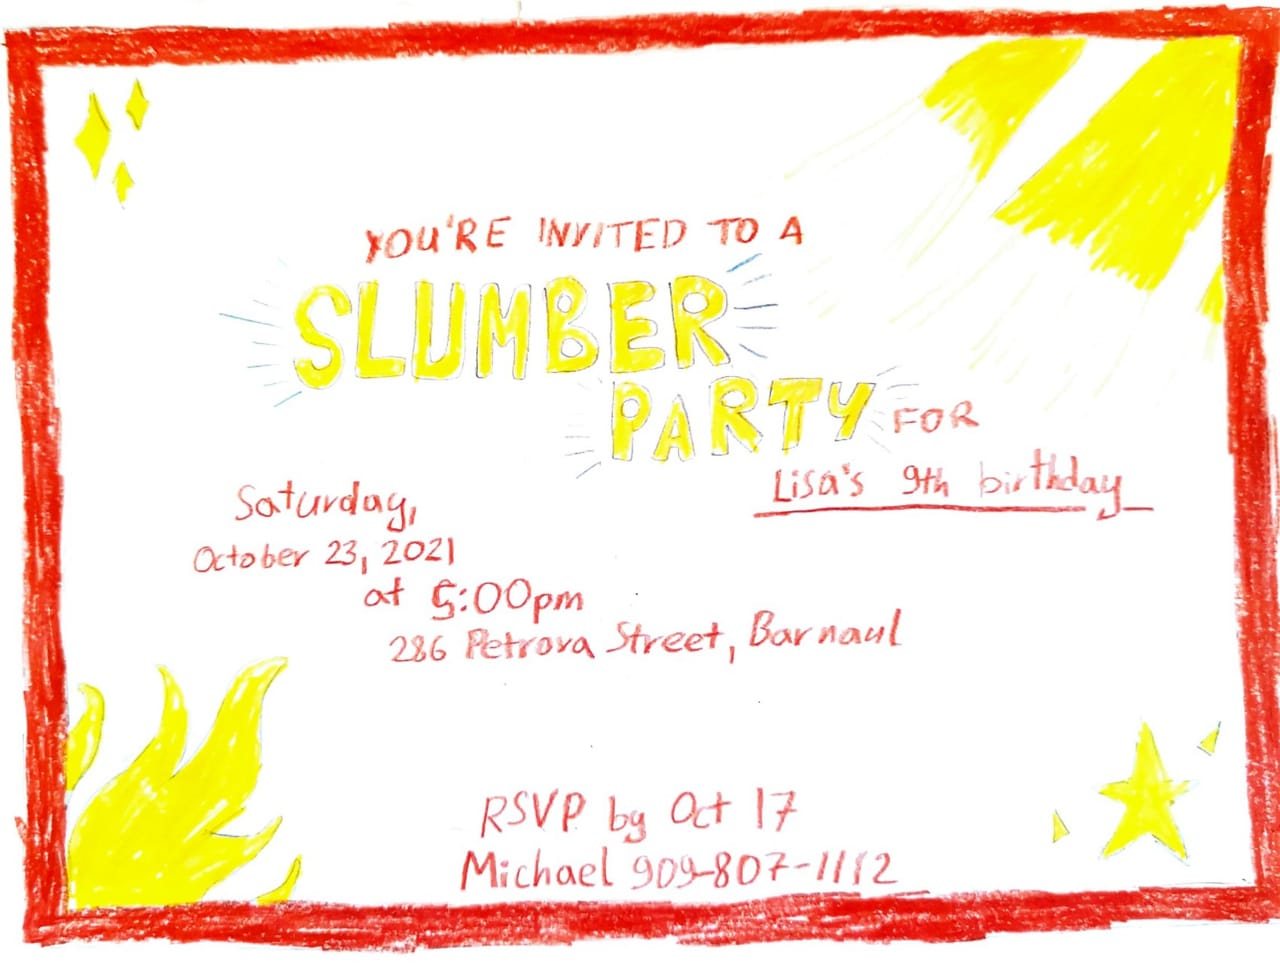 YOU'RE INVITED TO A
SLUMBER
PARTY FOR
Lisa's 9th birthday
Saturday,
October 23, 2021
at 5:00pm
286 Petrova Street, Barnaul
RSVP by Oct 17
Michael 909-807-1112